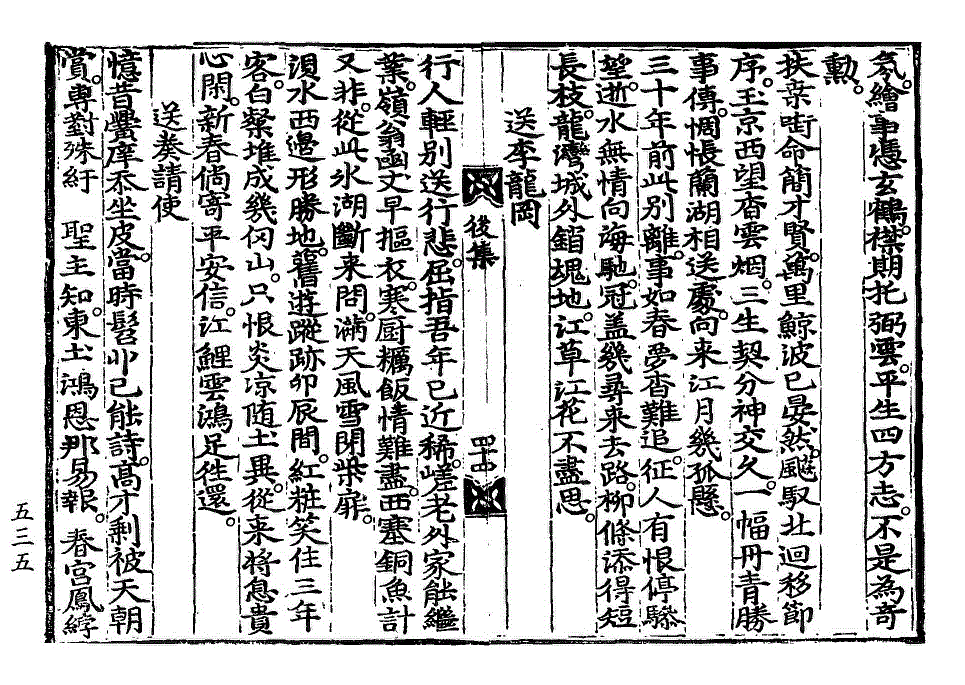 氛。繪事憑玄鶴。襟期托弼雲。平生四方志。不是為奇
勳。
扶桑啣命簡才賢。萬里鯨波已晏然。颷馭北迴移節
序。玉京西望杳雲烟。三生契分神交久。一幅丹青勝
事傳。惆悵蘭湖相送處。向来江月幾孤懸。
三十年前此別離。事如春夢杳難追。征人有恨停驂
。逝水無情向海馳。冠盖幾尋来去路。柳條添得短
長枝。龍灣城外銷魂地。江草江花不盡思。
送李龍岡
後集
四十四
行人輕別送行悲。屈指吾年已近稀。嗟老外家能繼
業。嶺翁函丈早摳衣。寒厨糲飯情難盡。西塞銅魚計
又非。從此氷湖斷来問。滿天風雪閉柴扉。
浿水西邊形勝地。舊遊蹤跡卯辰間。紅粧笑住三年
客。白粲堆成幾仞山。只恨炎凉随土異。從来將息貴
心閑。新春倘寄平安信。江鯉雲鴻足徃還。
送奏請使
憶昔黌庠忝坐皮。當時髫丱已能詩。高才剩被天朝
賞。專對殊紆　聖主知。東土鴻恩那易報。春宮鳳綍
五三五